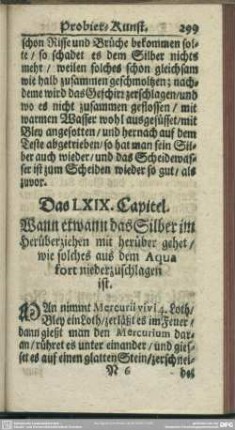 Probier-Kunst. 299
schon Risse und Brüche bekommen sol-
te/ so schadet es dem Silber nichts
mehr/ weilen solches schon gleichsam
wie halb zusammen geschmoltzen; nach-
deme wird das Geschirr zerschlagen/ und
wo es nicht zusammen geflossen/ mit
warmen Wasser wohl ausgesüsset/ mit
Bley angesotten/ und hernach auf dem
Teste abgetrieben/ so hat man sein Sil-
ber auch wieder/ und das Scheidewas-
ser ist zum Scheiden wieder so gut/ als
zuvor.
Das LXIX. Capitel.
Wann etwann das Silber im
Herüberziehen mit herüber gehet/
wie solches aus dem Aqua
fort niederzuschlagen
ist.
MAn nimmt Mercurii vivi 4. Loth/
Bley ein Loth/ zerläßt es im Feuer/
dann gießt man den Mercurium dar-
an/ rühret es unter einander/ und gies-
set es auf einen glatten Stein/ zerschnei-
N 6 det